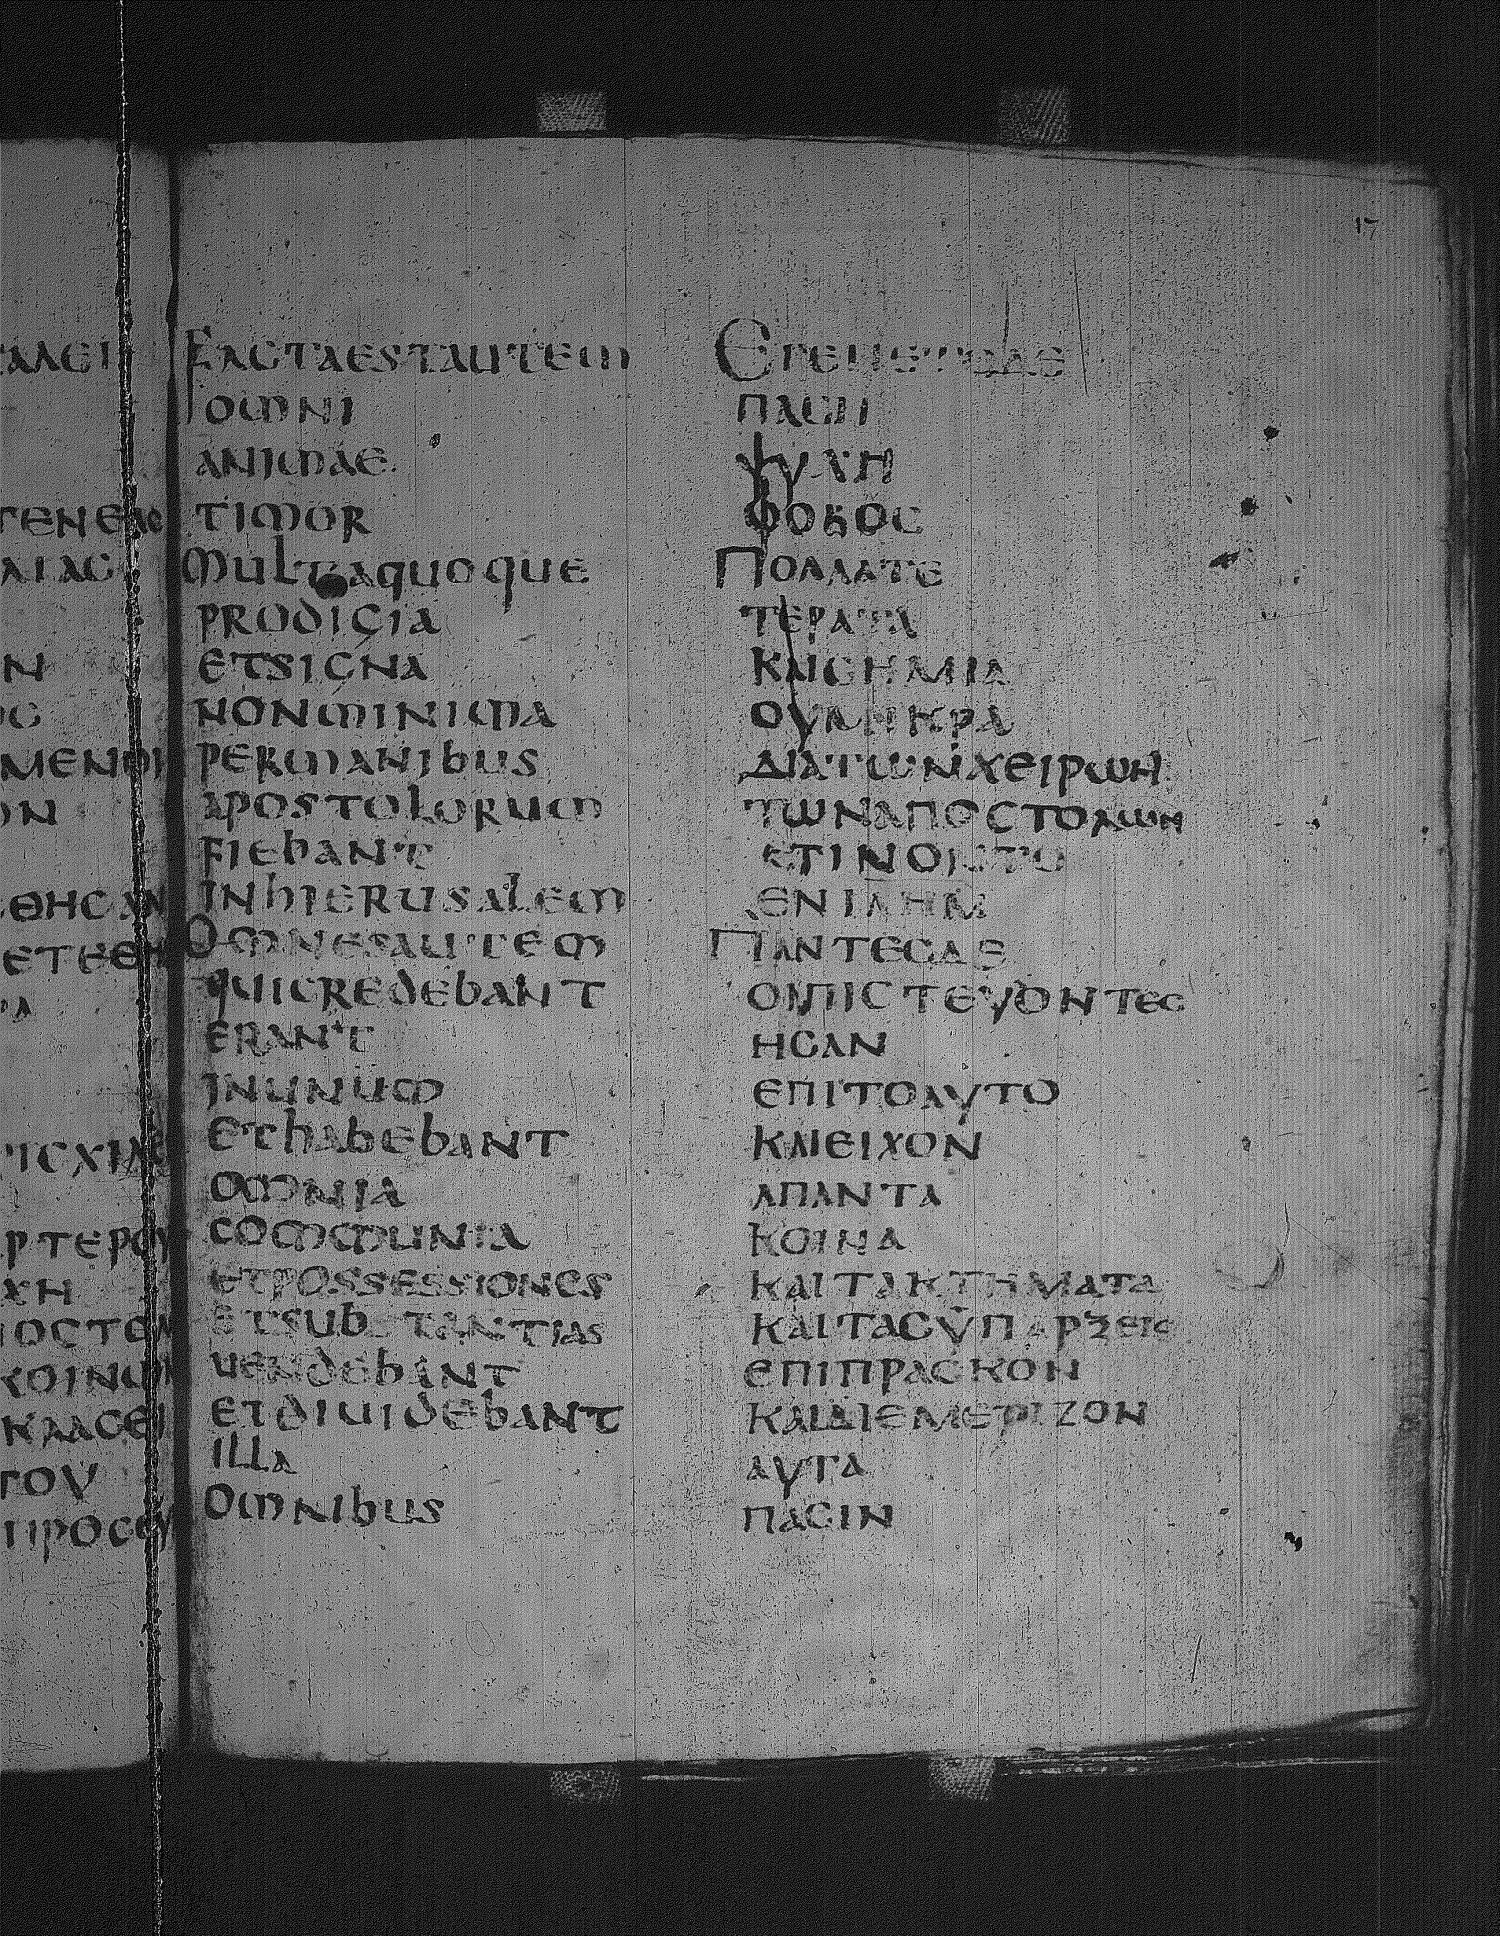 FACTAESTAUTEM
OMNI
ANIMAE
TIMOR
MULTAQUOQUE
PRODIGIA
ETSIGNA
NONMINIMA
PERMANIBUS
APOSTOLORUM
FIEBANT
INHIERUSALEM
OMNESAUTEM
QUICREDEBANT
ERANT
INUNUM
ETHABEBANT
OMNIA
COMMUNIA
ETPOSSESSIONES
ETSUBSTANTIAS
UENDEBANT
ETDIUIDEBANT
ILLA
OMNIBUS
17
ΕΓΕΝΕΤΟΔΕ
ΠΑCΗ
ΨΥΧΗ
ΦΟΒΟC
ΠΟΛΛΑΤΕ
ΤΕΡΑΤΑ
ΚΑΙCΗΜΙΑ
ΟΥΜΗΚΡΑ
ΔΙΑΤΩΝΧΕΙΡΩΝ
ΤΩΝΑΠΟCΤΟΛΩΝ
ΕΓΙΝΟΝΤΟ
ΕΝΙΛΗΜ
ΠΑΝΤΕCΔΕ
ΟΙΠΙCΤΕΥΟΝΤΕC
ΗCΑΝ
ΕΠΙΤΟΑΥΤΟ
ΚΑΙΕΙΧΟΝ
ΑΠΑΝΤΑ
ΚΟΙΝΑ
ΚΑΙΤΑΚΤΗΜΑΤΑ
ΚΑΙΤΑCΥΠΑΡΞΕΙC
ΕΠΙΠΡΑCΚΟΝ
ΚΑΙΔΙΕΜΕΡΙΖΟΝ
ΑΥΤΑ
ΠΑCΙΝ